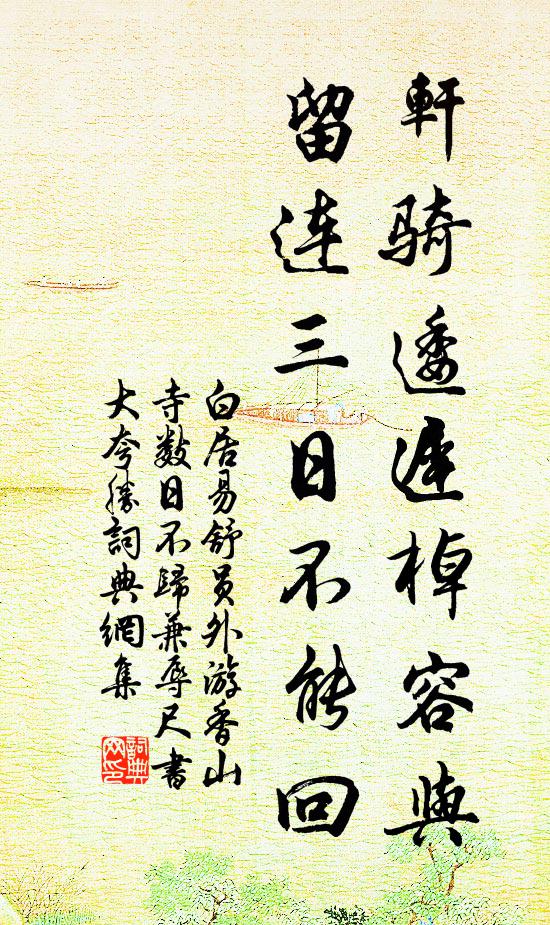 軒騎逶遲棹容與
留连三日不能回
白居易舒員外游香山
寺数日不歸兼辱尺書
大夸勝詞典網集
詞典
网印